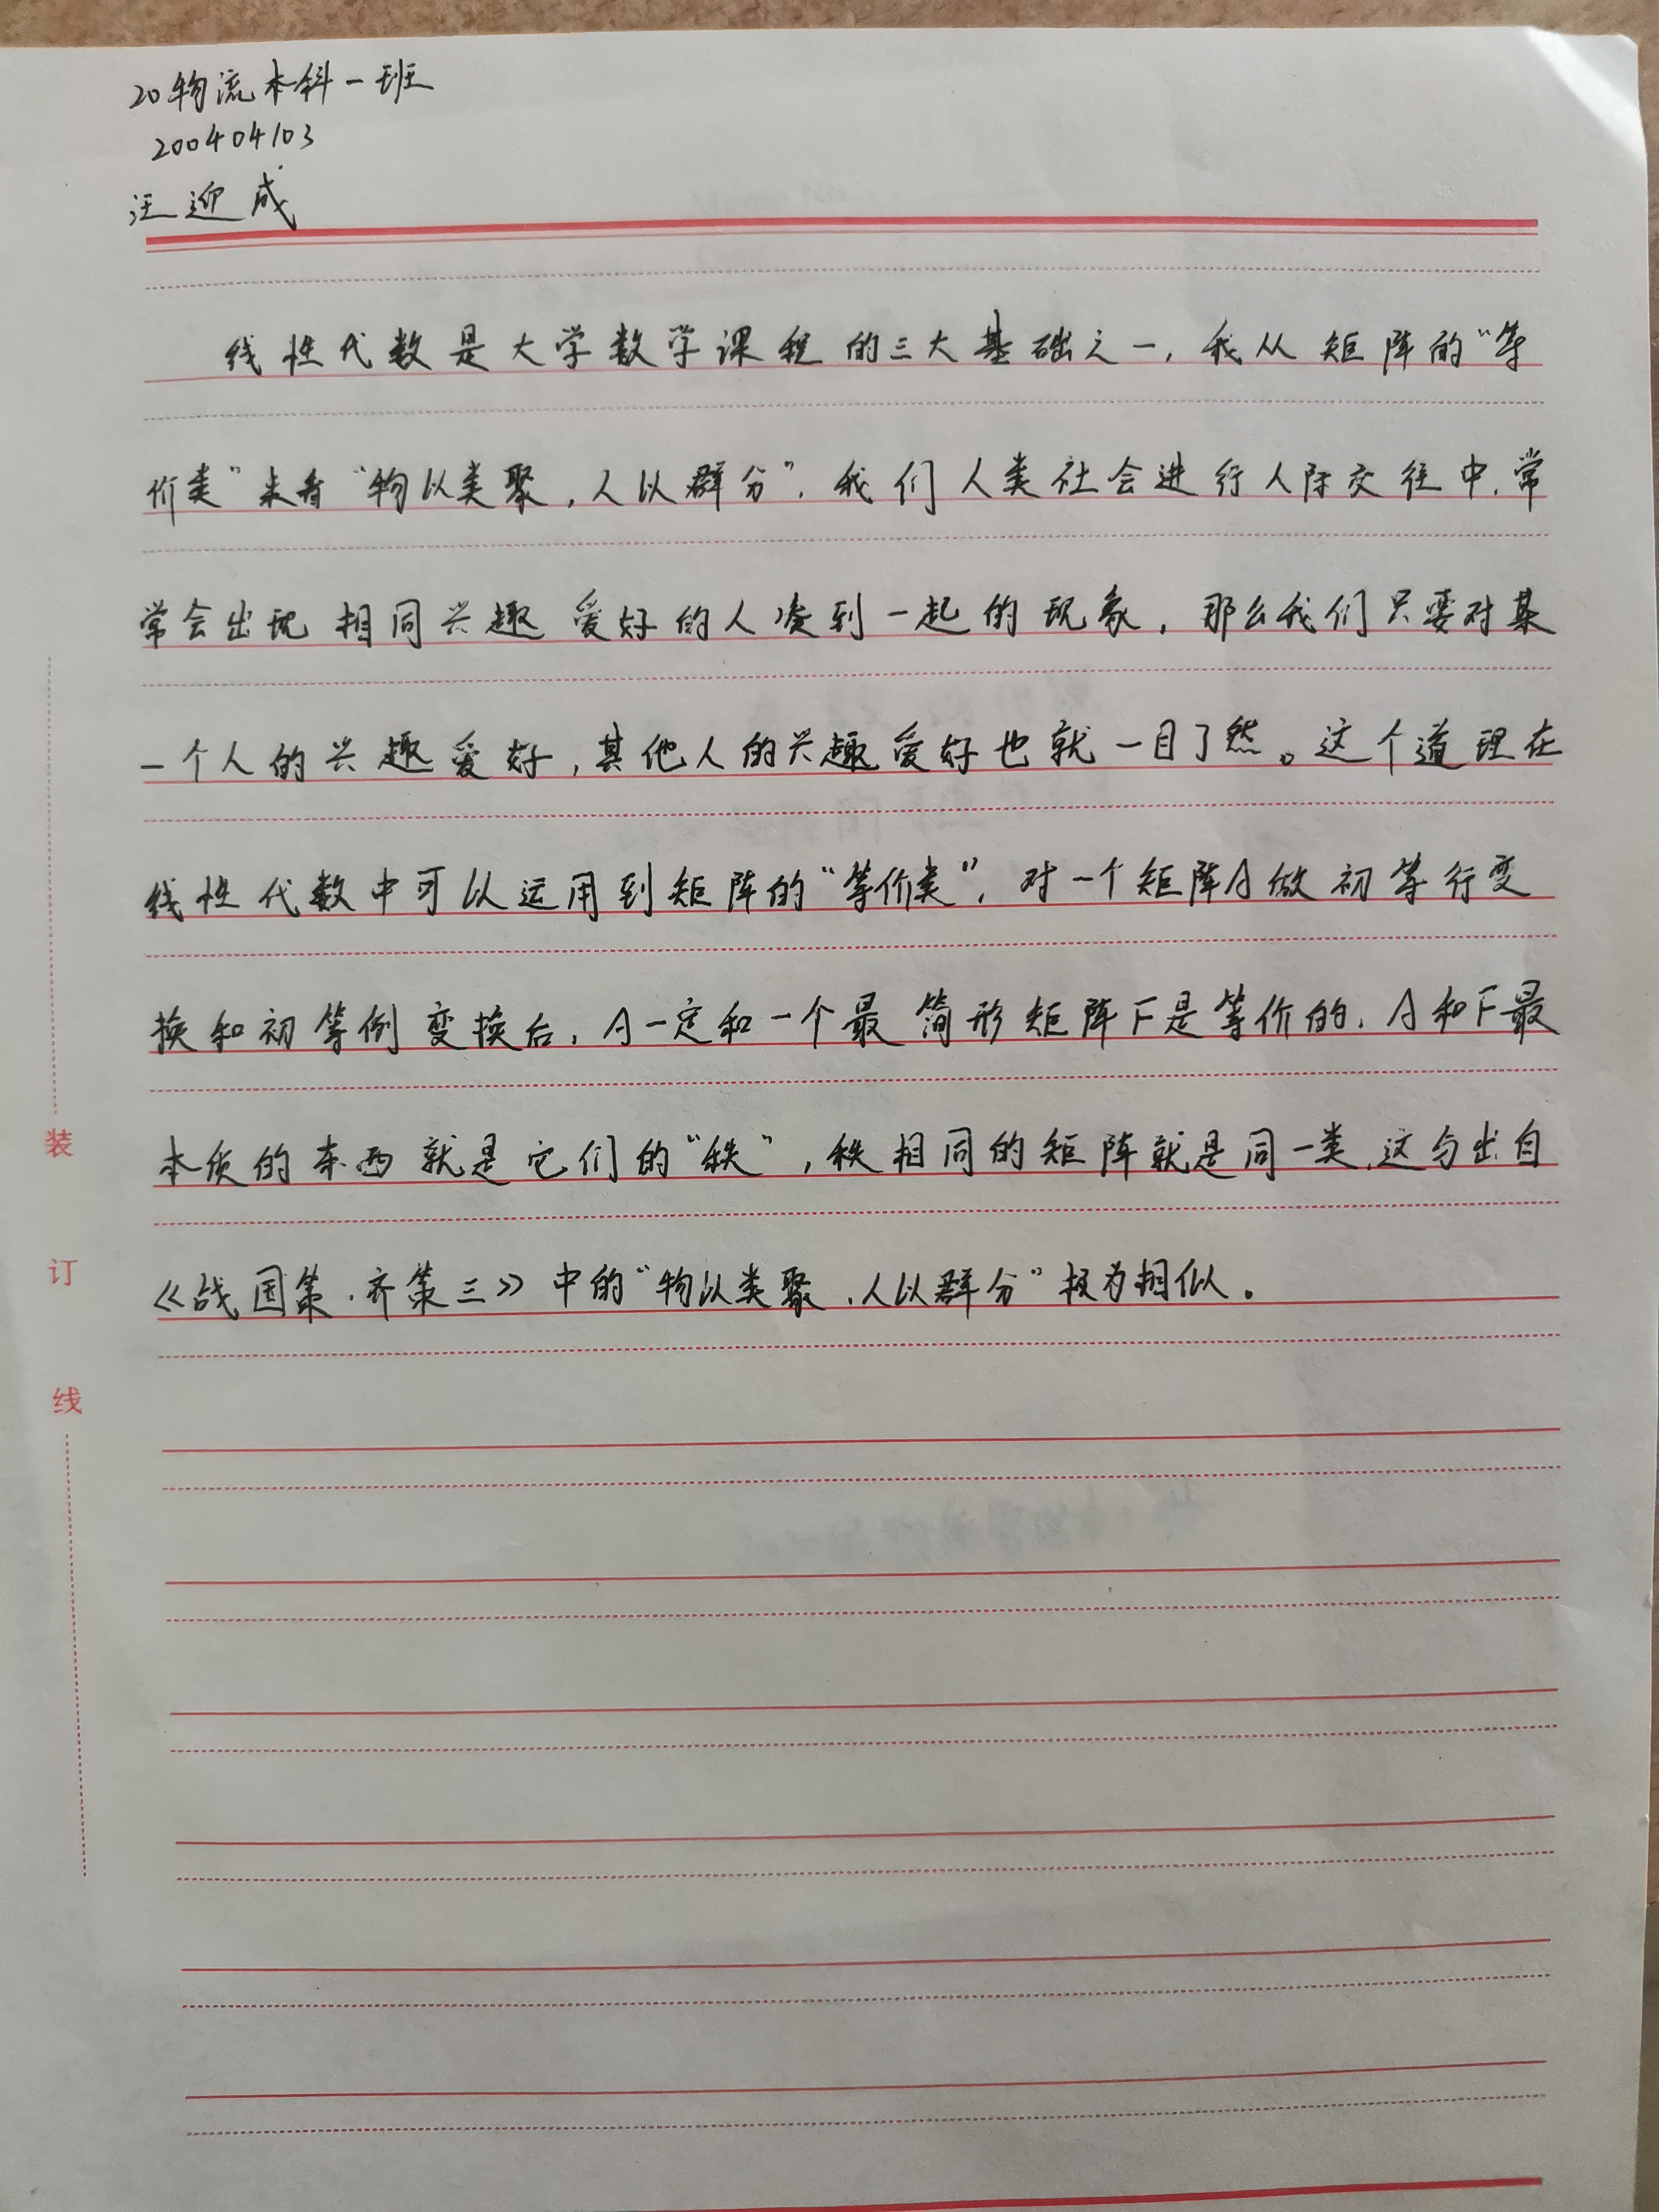 20物流本科一班
200404103
汪迎成
线性代数是大学数学课程的三大基础之一，我从矩阵的“等
价类”来看“物以类聚，人以群分”，我们人类社会进行人际交往中，常
常会出现相同兴趣爱好的人凑到一起的现象，那么我们只要对某
一个人的兴趣爱好，其他人的兴趣爱好也就一目了然。这个道理在
线性代数中可以运用到矩阵的“等价类”，对一个矩阵A做初等行变
换和初等例变换后，A一定和一个最简形矩阵F是等价的，A和F最
本质的东西就是它们的“秩”，秩相同的矩阵就是同一类，这与出自
《战国策·齐策三》中的“物以类聚，人以群分”极为相似。
装
订
线